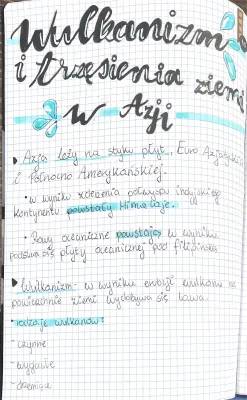 Wulkanizm
i trzęsienia ziemi
w Azji
Azja leży na styku płyt, Euro Azjatyckiej
i Północno Amerykańskiej.
• w wyniku zderzenia odwapu indyjskiego
kontynentu powstały Himalaje.
• Rowy oceaniczne powstają w wyniku
podsuwa się płyty oceanicznej pod filipińską
Wulkanizm - w wyniku erubcji wulkanu na
powierzchnię ziemi wydobywa się lawa.
• rodzaje wulkanów:
- czynne
- wygasłe
- drzemiące